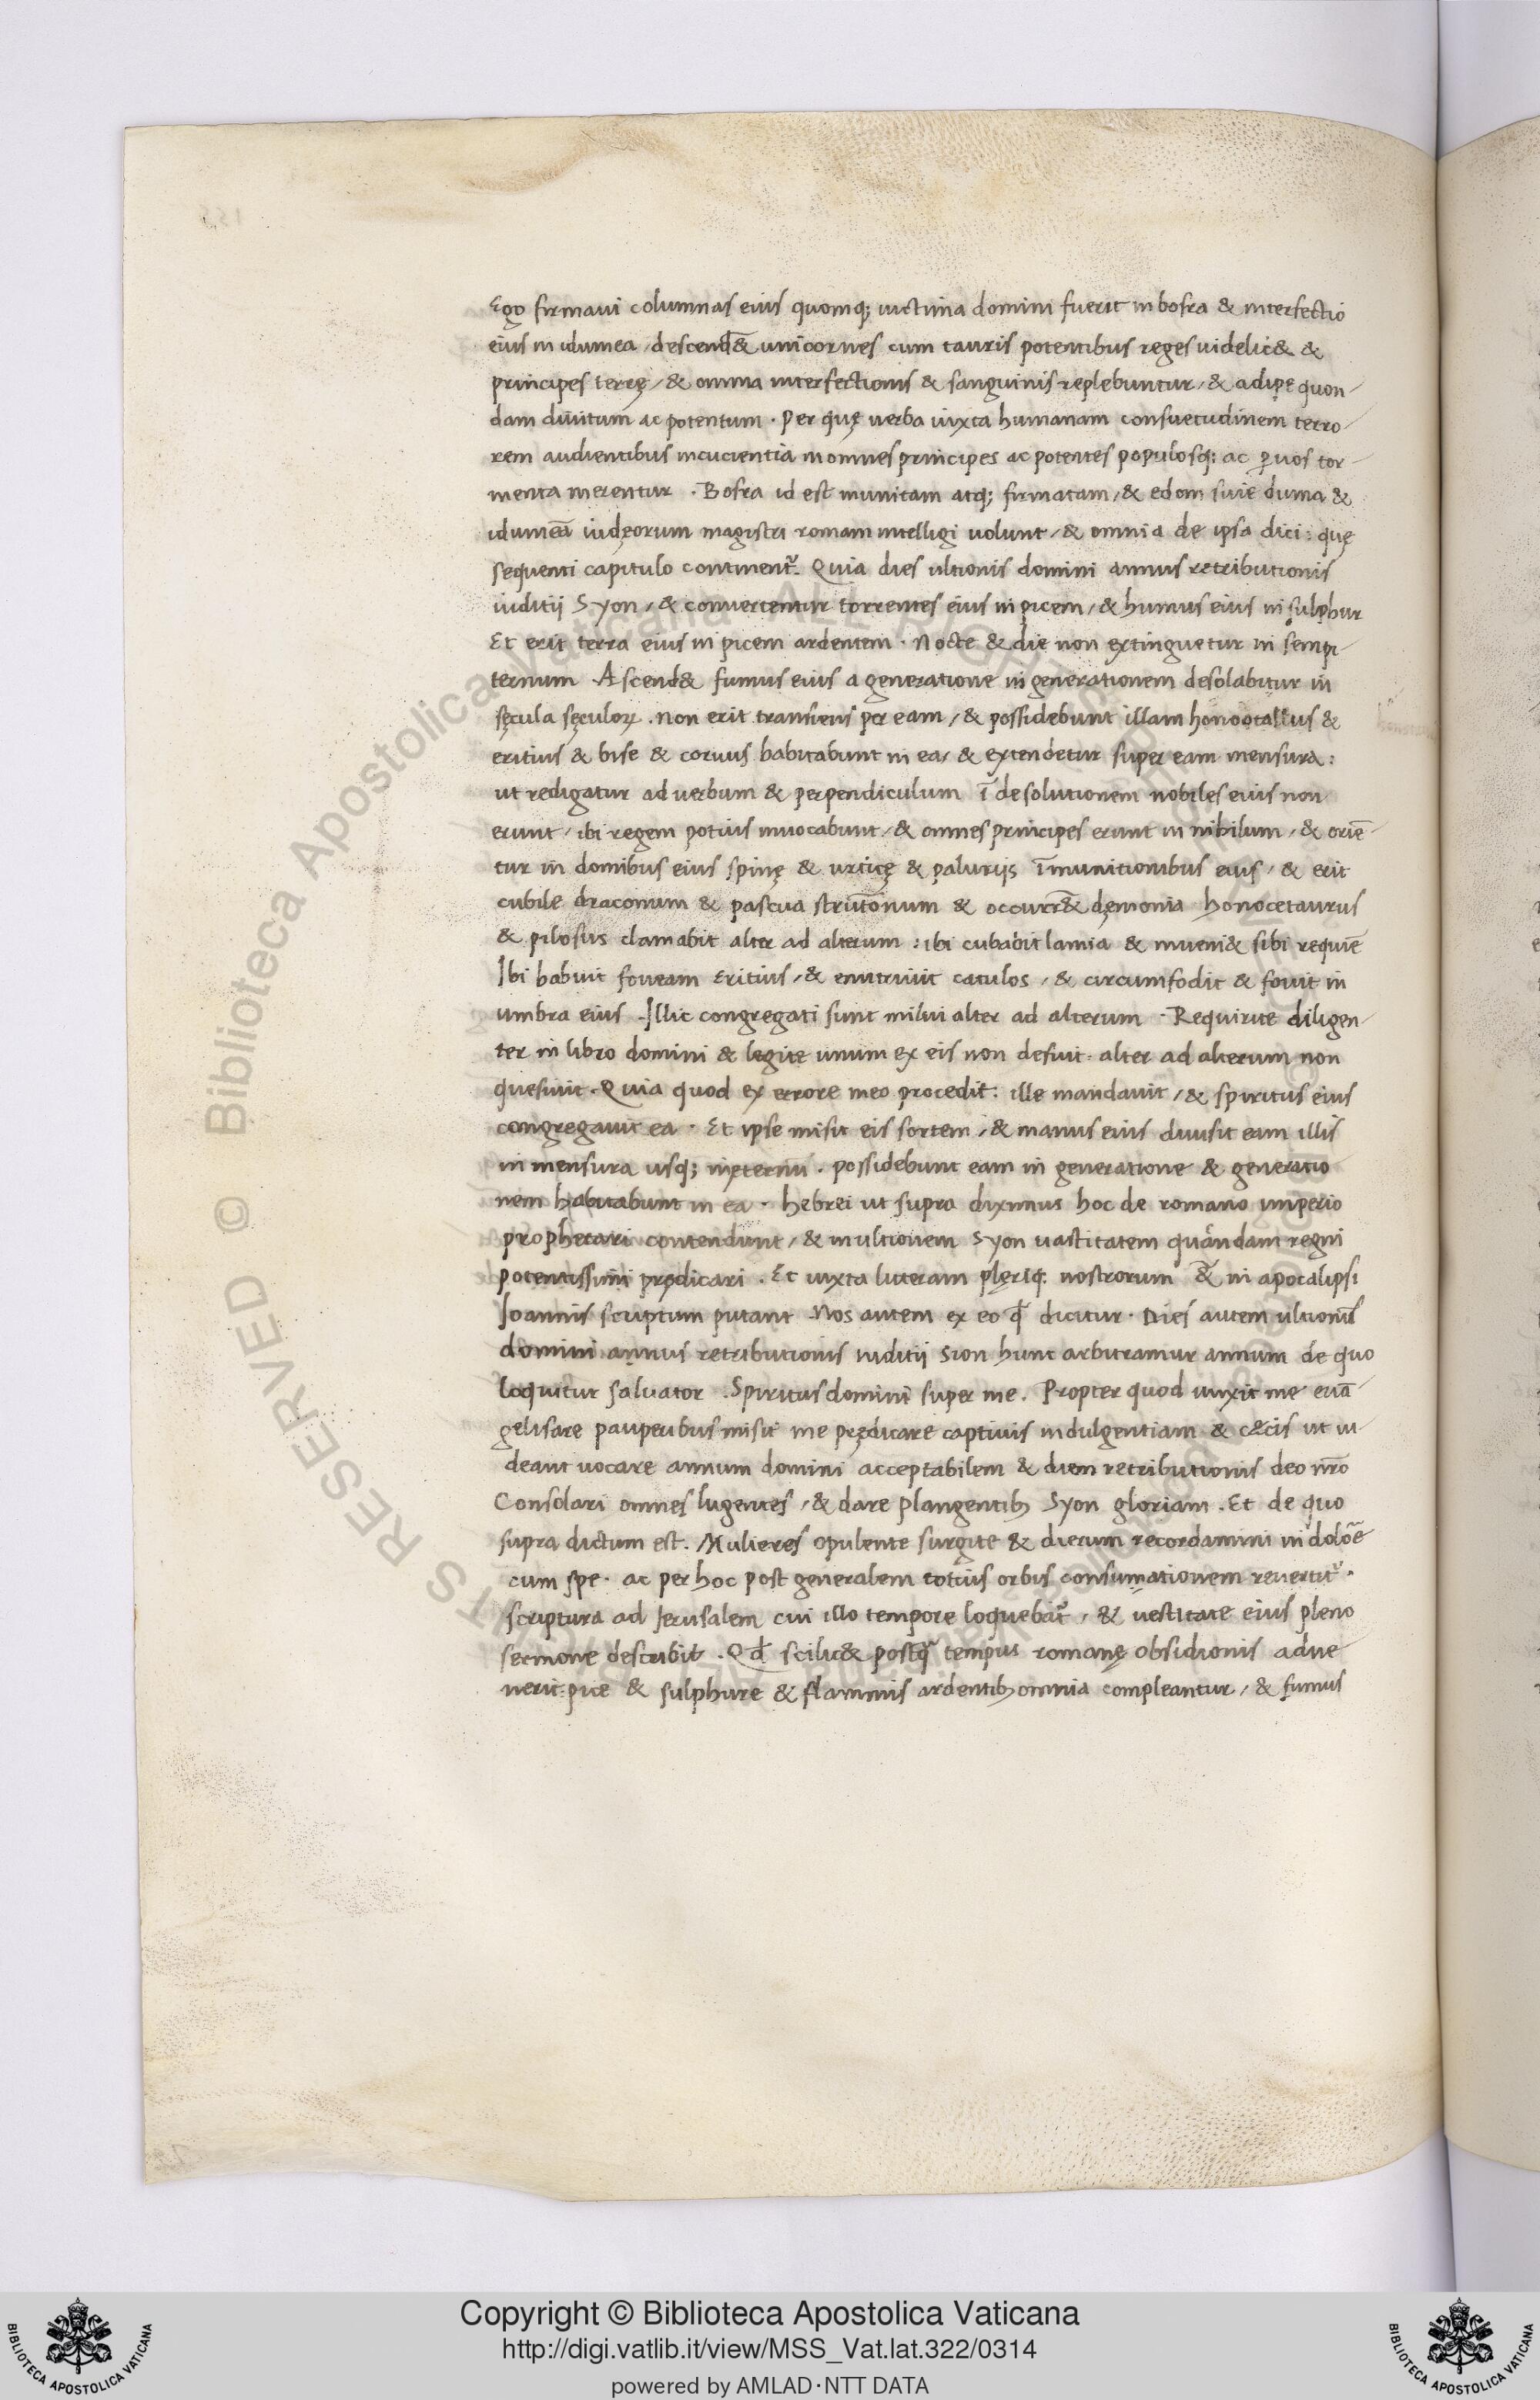 Ego firmaui columnas eius quomq; uictima domini fuerit in bosra & interfectio
eius in idumea / descend& unicornes cum tauris potentibus reges uidelic& &
principes terrę / & omnia interfectionis & sanguinis replebuntur / & adipe quon-
dam diuitum ac potentum · Per quę uerba iuxta humanam consuetudinem terro-
rem audientibus incucientia in omnes principes ac potentes populosq; ac ꝑuos tor-
menta merentur · Bosra id est munitam atq; firmatam / & edom siue duma &
idumeā iudęorum magistri romam intelligi uolunt / & omnia de ipsa dici : quę
sequenti capitulo continent᷑. Quia dies ultionis domini annus retributionis
iuditij Syon / & conuertentur torrentes eius in picem / & humus eius in sulphur
Et erit terra eius in picem ardentem · Nocte & die non extinguetur in sempi-
ternum Ascend& fumus eius a generatione in generationem desolabitur in
sęcula sęculoꝝ . non erit transiens per eam / & possidebunt illam honootalius &
eritius & bise & coruus habitabunt in ea / & extendetur super eam mensura :
ut redigatur ad uerbum & perpendiculum ī desolutionem nobiles eius non
erunt / ibi regem potius inuocabunt / & omnes principes erunt in nihilum / & oriē-
tur in domibus eius spinę & urticę & paluriis ī munitionibus eius / & erit
cubile draconum & pascua strutōnum & occurr& dęmonia honocetaurus
& pilosus clamabit alter ad alterum : ibi cubabit lamia & inueni& sibi requiē
Ibi habuit foueam Eritius / & enutriuit catulos / & circumfodit & fouit in
umbra eius . Illic congregati sunt milui alter ad alterum · Requirite diligen-
ter in libro domini & legite unum ex eis non defuit · alter ad alterum non
quesiuit . Quia quod ex errore meo procedit : ille mandauit / & spiritus eius
congregauit ea · Et ipse misit eis sortem / & manus eius diuisit eam illis
in mensura usq; inęternū . possidebunt eam in generatione & generatio
nem habitabunt in ea · hebrei ut supra diximus hoc de romano imperio
prophetari contendunt / & in ultionem Syon uastitatem quandam regni
potentissimi prędicari . Et iuxta litteram plęriq; nostrorum & in apocalipsi
Ioannis scriptum putant . Nos autem ex eo qđ dicitur · Dies autem ultionis
domini annus retributionis iuditij sion hunc arbitramur annum de quo
loquitur saluator . Spiritus domini super me . Propter quod unxit me euā-
gelisare pauperibus misit me prędicare captiuis indulgentiam & cęcis ut ui-
deant uocare annum domini acceptabilem & diem retributionis deo nr̄o
Consolari omnes lugentes / & dare plangentib; Syon gloriam . Et de quo
supra dictum est . Mulieres opulente surgite & dierum recordamini in dolor̄e
cum spe · ac per hoc post generalem totius orbis consumationem reuertit᷑ ·
scriptura ad Jerusalem cui illo tempore loquebat᷑ / & uestitate eius pleno
sermone describit . Qđ scilic& postq̄ tempus romanę obsidionis adue
nerit : pice & sulphure & flammis ardentib; omnia compleantur / & fumus
Copyright © Biblioteca Apostolica Vaticana
http://digi.vatlib.it/view/MSS_Vat.lat.322/0314
powered by AMLAD·NTT DATA